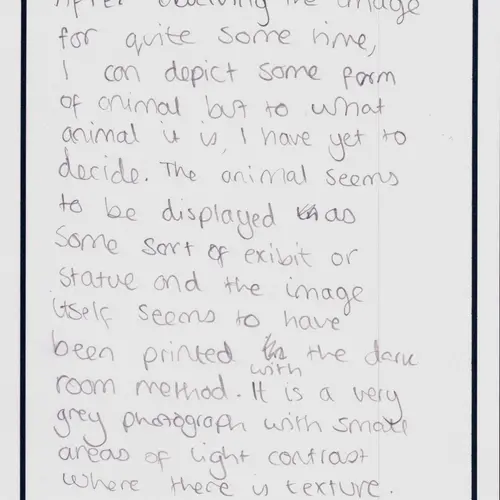 After observing the image
for quite some time,
I can depict some form
of animal but to what
animal it is, I have yet to
decide. The animal seems
to be displayed as
some sort of exibit or
statue and the image
itself seems to have
been printed with the dark
room method. It is a very
grey photograph with small
areas of light contrast
where there is texture.